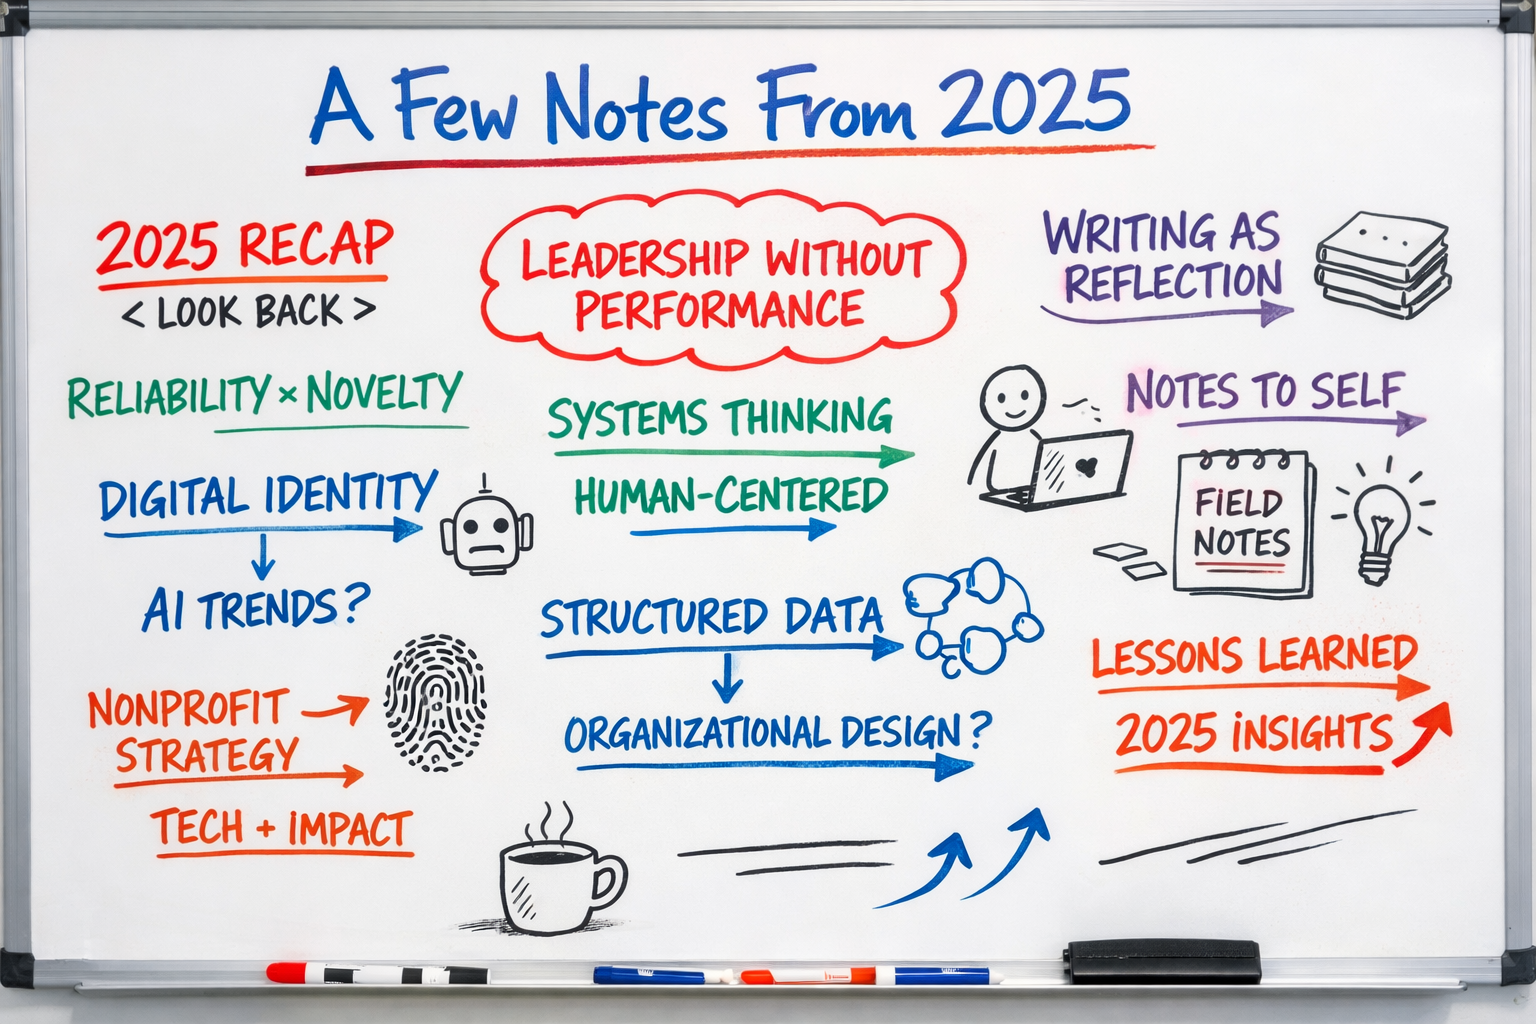 A Few Notes From 2025
2025 RECAP
< LOOK BACK >
RELIABILITY × NOVELTY
DIGITAL IDENTITY
AI TRENDS?
NONPROFIT
STRATEGY
TECH + IMPACT
LEADERSHIP WITHOUT
PERFORMANCE
SYSTEMS THINKING
HUMAN-CENTERED
STRUCTURED DATA
ORGANIZATIONAL DESIGN?
WRITING AS
REFLECTION
NOTES TO SELF
FIELD
NOTES
LESSONS LEARNED
2025 INSIGHTS